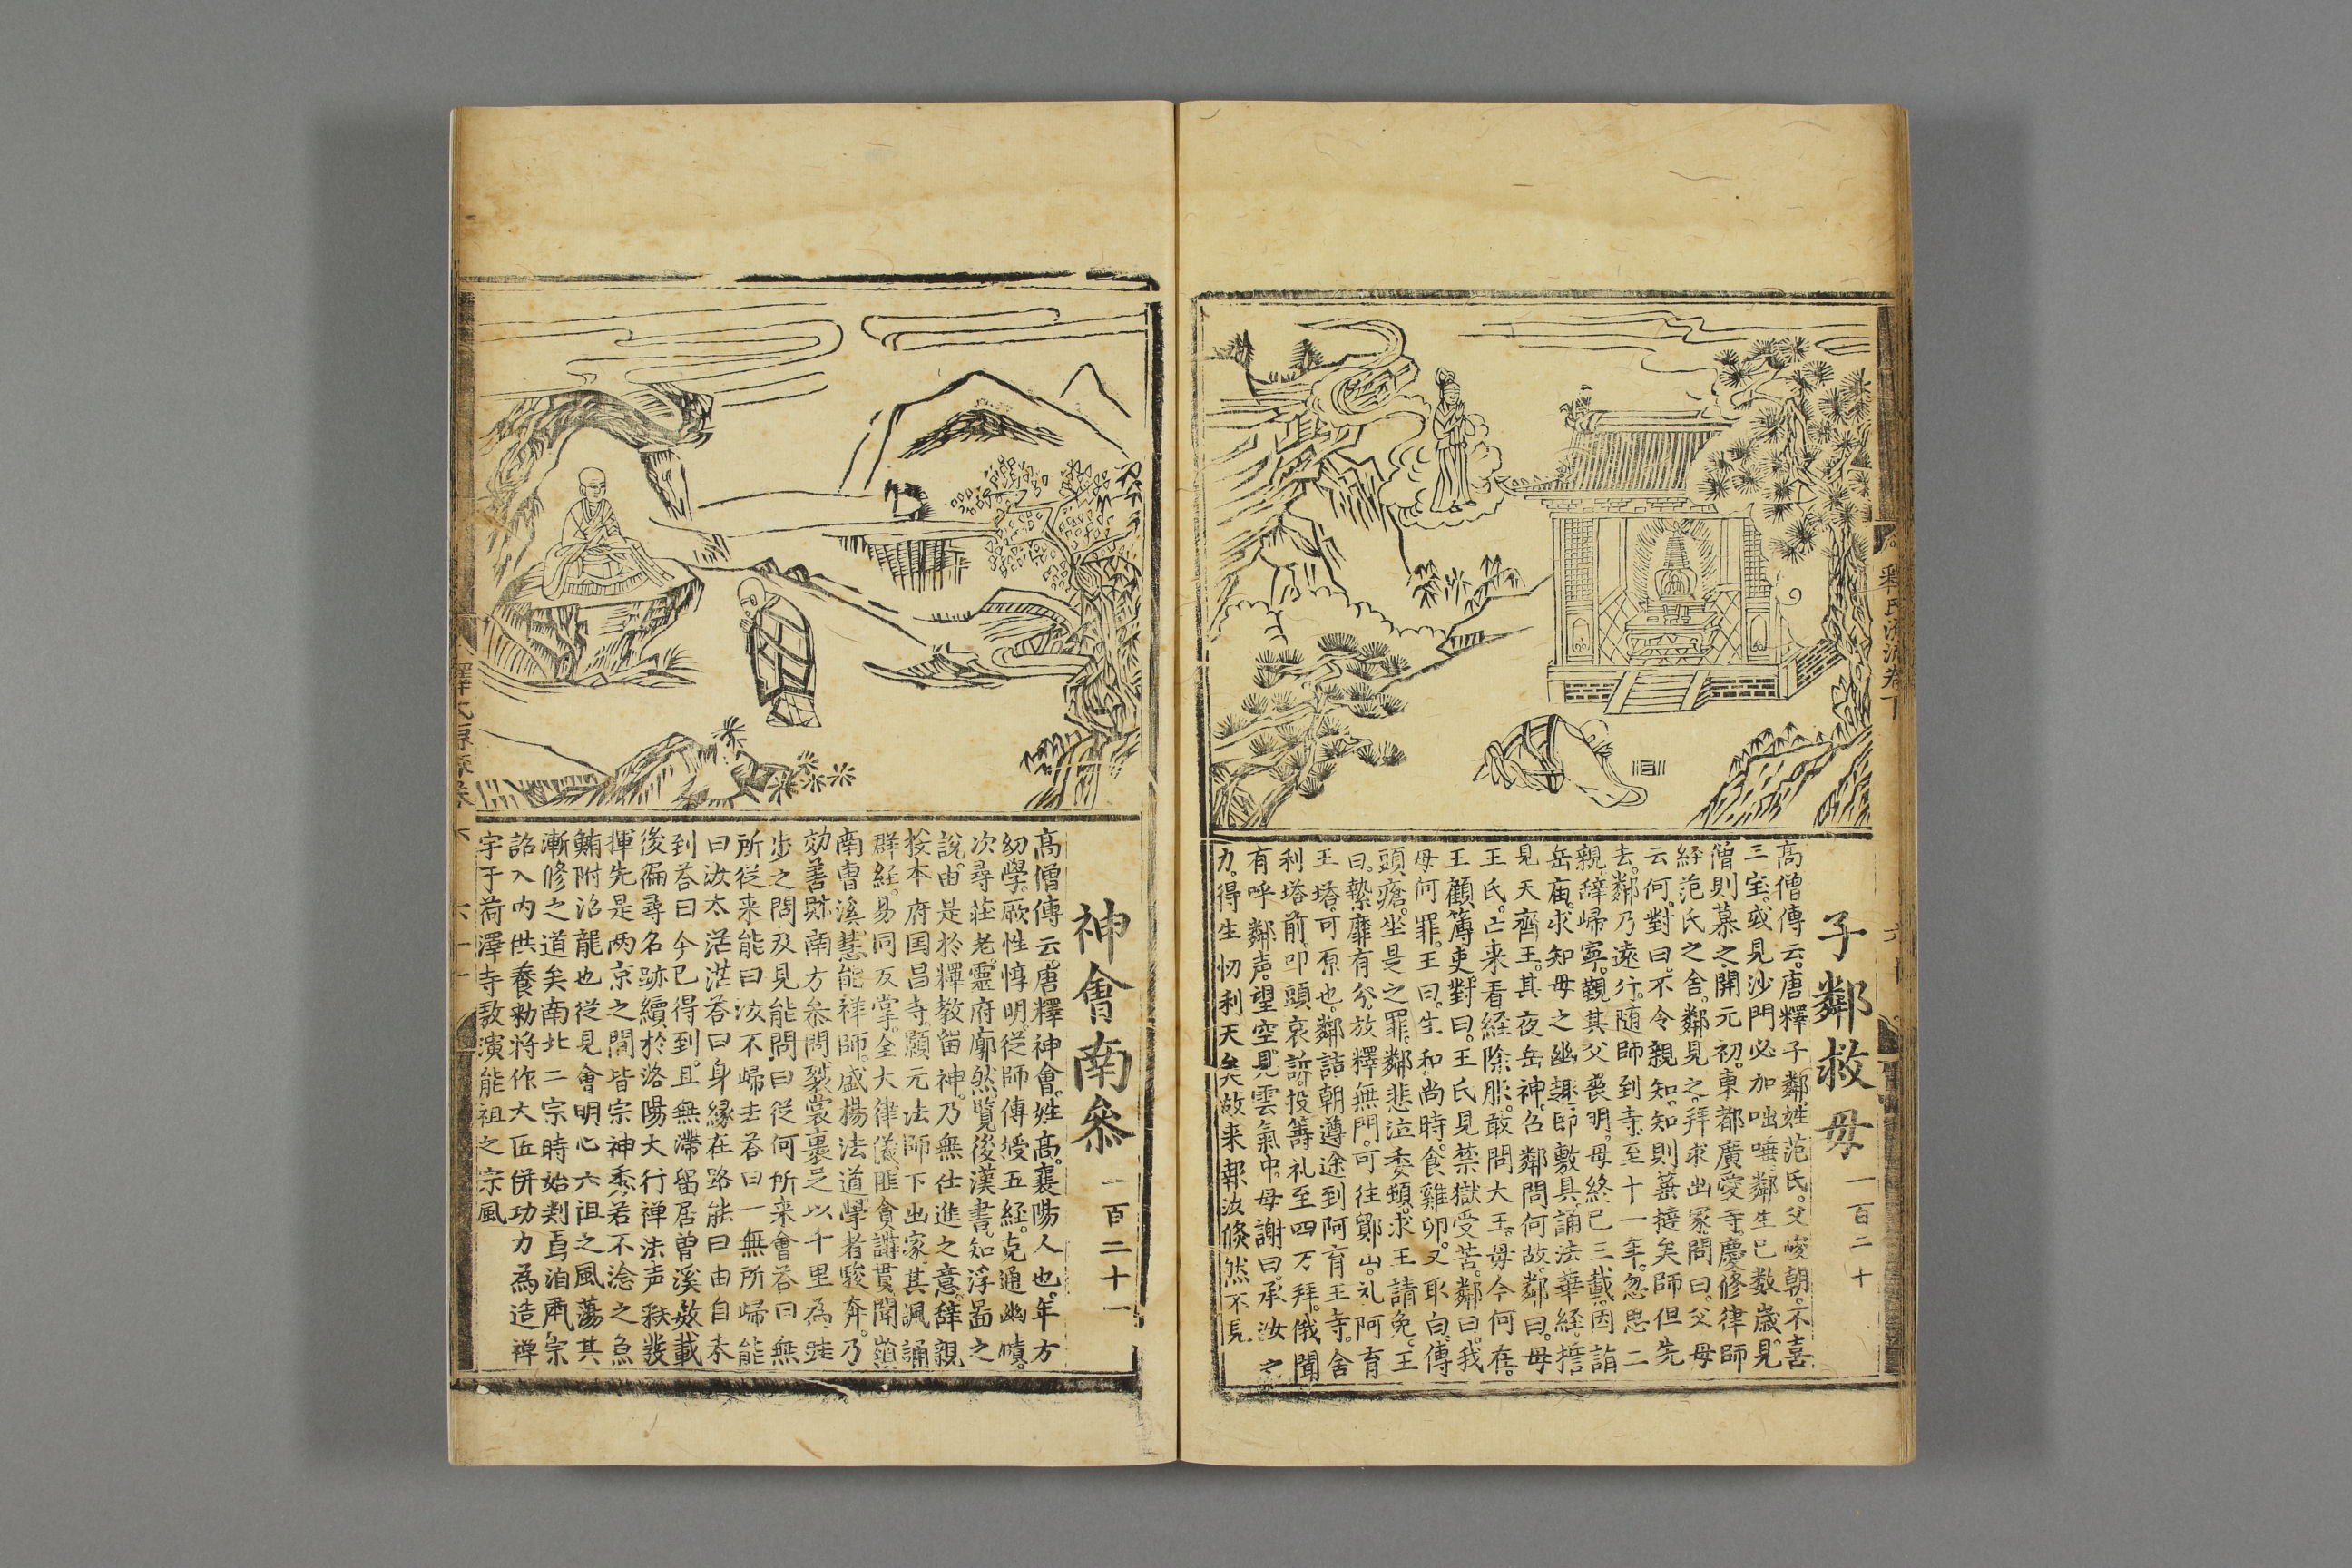 子鄰救母 一百二十
高僧傳云唐釋子鄰姓范氏父峻朝不喜
三宝或見沙門必加咄唾鄰生已数歲見
僧則慕之開元初東都廣愛寺慶修律師
経范氏之舍鄰見之拜求出家問曰父母
云何對曰不令親知知則箠撻矣師但先
去鄰乃遠行随師到寺至十一年忽思二
親辞歸寧觀其父喪明母終已三載因詣
岳庙求知母之幽趣即敷具誦法華経誓
見天齊王其夜岳神召鄰問何故鄰曰母
王氏亡来看経除服敢問大王母今何在
王顧簿吏對曰王氏見禁獄受苦鄰曰我
母何罪王曰生和尚時食雞卵又取白傅
頭瘡坐是之罪鄰悲泣委頓求王請免王
曰縶靡有分放釋無門可往鄮山礼阿育
王塔可原也鄰詰朝遵途到阿育王寺舍
利塔前叩頭哀訴投籌礼至四万拜俄聞
有呼鄰声望空見雲氣中母謝曰承汝之
力得生忉利天矣故来報汝倐然不見
釋氏源流卷下
神會南叅 一百二十一
高僧傳云唐釋神會姓高襄陽人也年方
幼學厥性惇明從師傳授五経克通幽賾
次尋莊老靈府廓然覽後漢書知浮啚之
說由是於釋教畄神乃無仕進之意辞親
投本府国昌寺顥元法師下出家其諷誦
群経易同反掌全大律儀匪貪講貫聞嶺
南曺溪慧能禅師盛揚法道學者駿奔乃
効善財南方叅問裂裳裹足以千里為跬
步之間及見能問曰從何所来會答曰無
所從来能曰汝不歸去答曰一無所歸能
曰汝太茫茫答曰身縁在路能曰由自未
到答曰今已得到且無滯留居曽溪数載
後徧尋名跡續於洛陽大行禅法声彩發
揮先是两京之間皆宗神秀若不淰之魚
鮪附沼龍也從見會明心六祖之風蕩其
漸修之道矣南北二宗時始判焉洎甭宗
詔入内供養勑将作大匠併功力為造禅
宇于荷澤寺敭演能祖之宗風
釋氏源流卷下